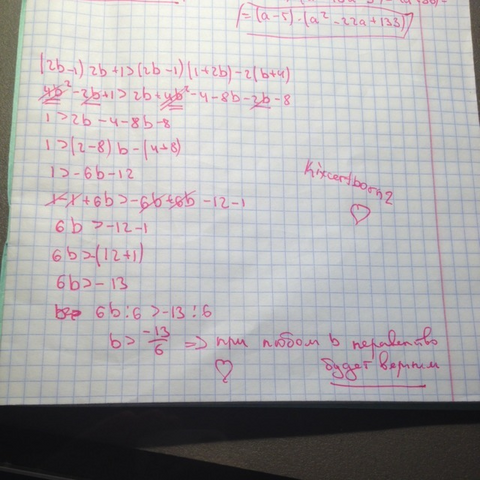 =(a-5)·(a²-22a+133)
(2b-1)2b+1>(2b-1)(1+2b)-2(b+4)
4b²-2b+1>2b+4b²-4-8b-2b-8
1>2b-4-8b-8
1>(2-8)b-(4+8)
1>-6b-12
1-1+6b>-6b+6b-12-1
Kixcertboon2
♡
6b>-12-1
6b>-(12+1)
6b>-13
6b:6>-13:6
b>-13/6 => при любом b неравенство
♡ будет верным